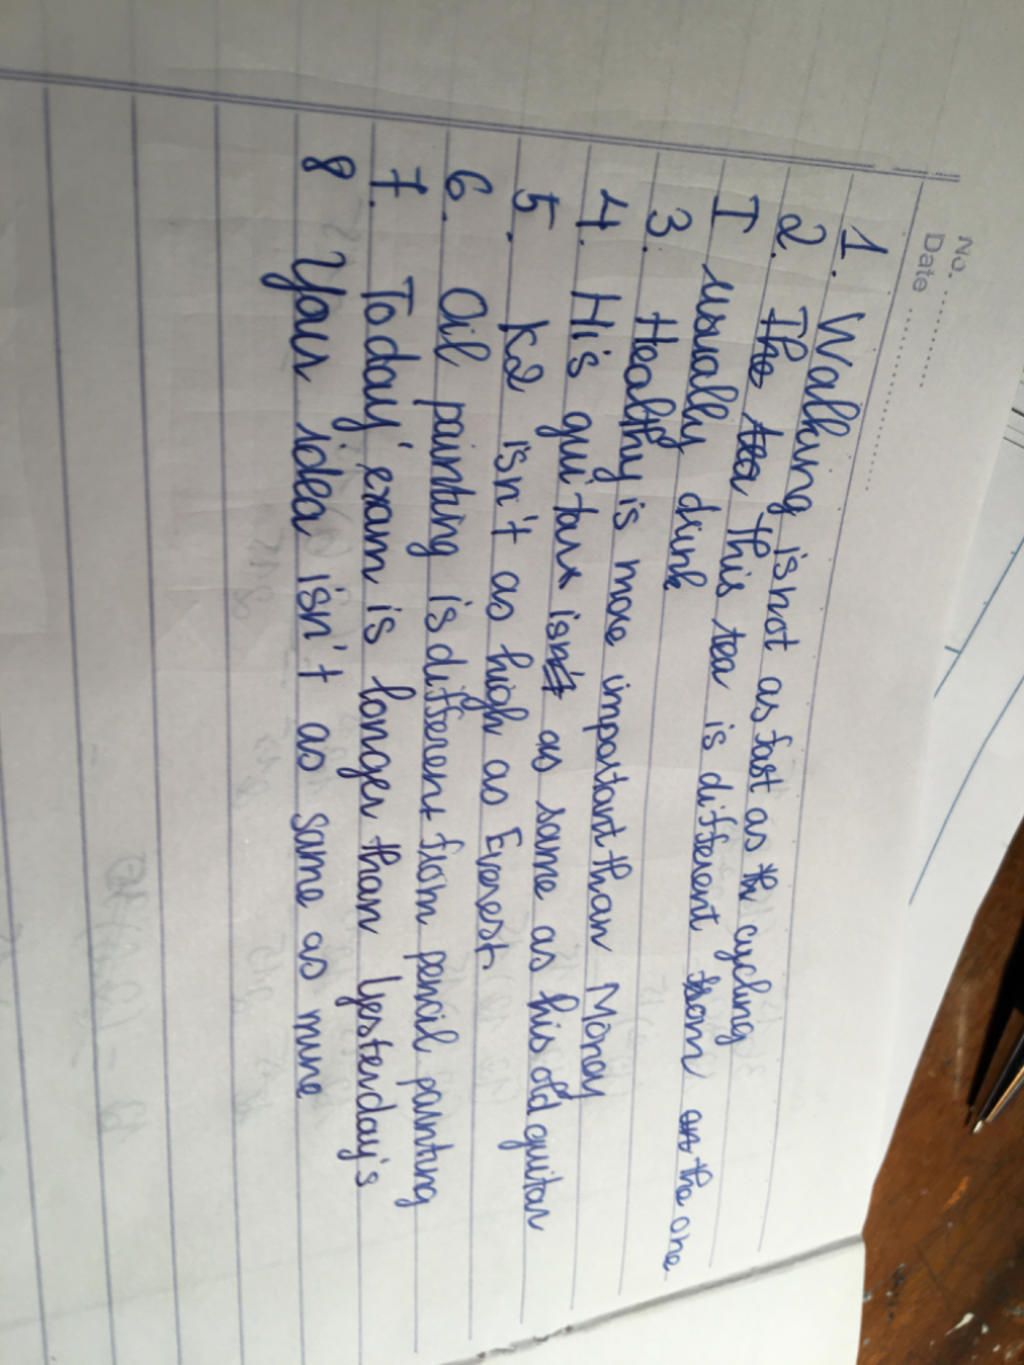 No.
Date
1. Walking is not as fast as cycling
2. This tea is different from the one
I usually drink
3. Healthy is more important than Money
4. His guitar is as same as his old guitar
5. K2 isn't as high as Everest.
6. Oil painting is different from pencil painting
7. Today' exam is longer than yesterday's
8 Your idea isn't as same as mine